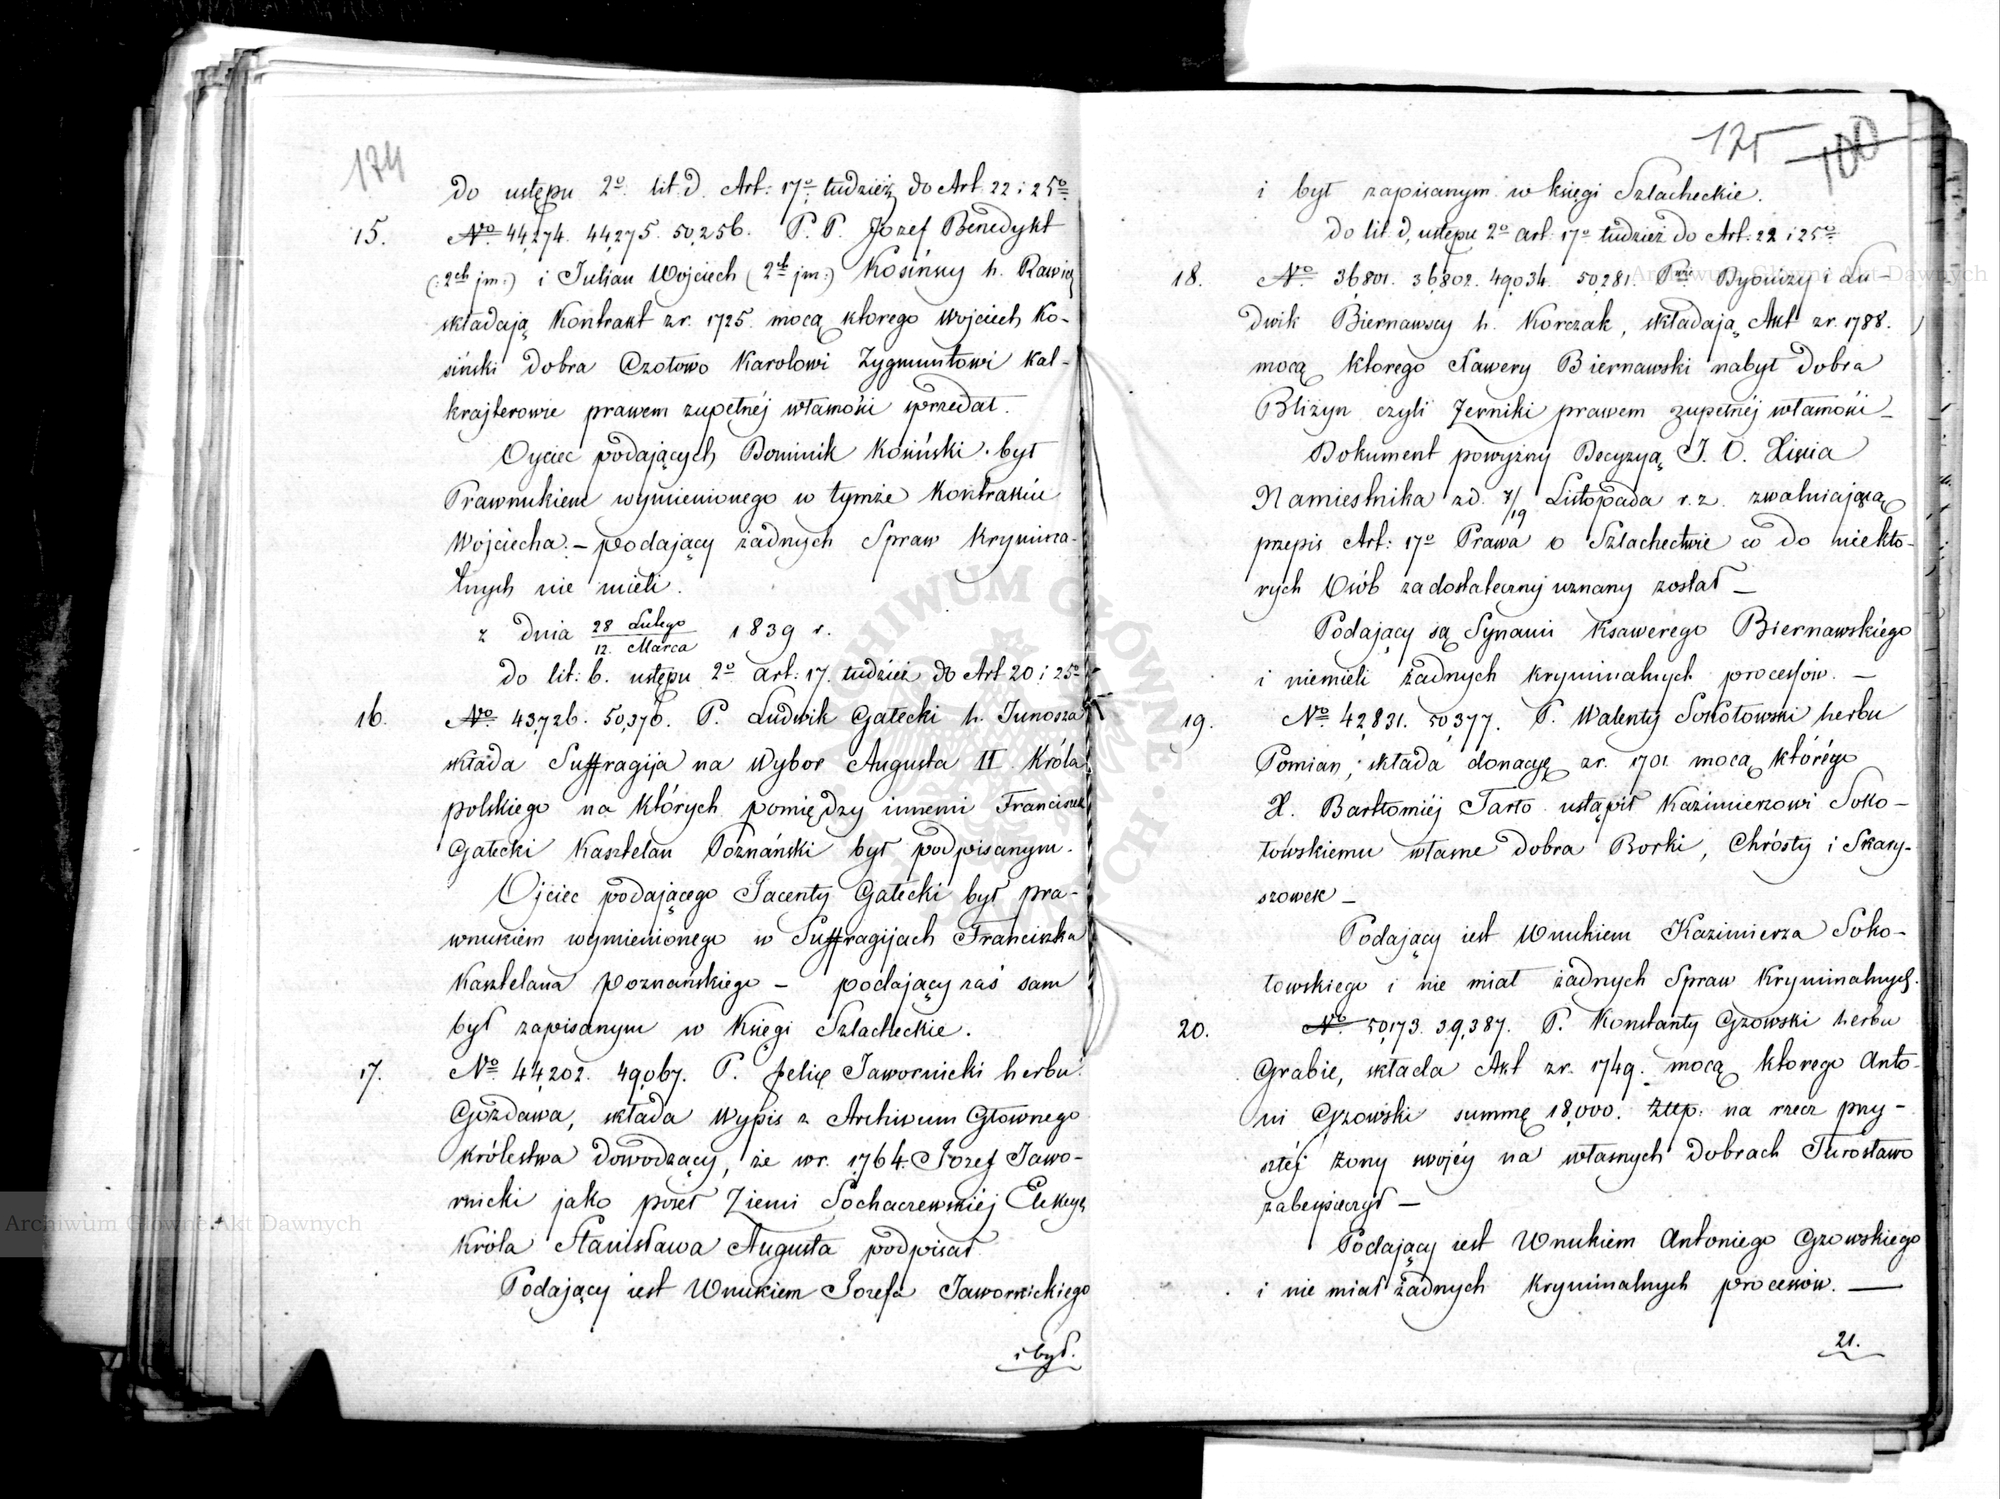 174
do ustępu 2o lit. d. Art: 17o tudzież do Art. 22 i 25o
15. No 44,274. 44,275. 50,256. P. P. Józef Benedykt
(:2ch jm:) i Julian Wojciech (2ch jm:) Kosińscy h. Rawicz
składają Kontrakt z r. 1725. mocą którego Wojciech Ko-
siński dobra Czołowo Karolowi Zygmuntowi Kal-
krajterowie prawem zupełnéj własności sprzedał.
Oyciec podających Dominik Kosiński był
Prawnukiem wymienionego w tymże Kontrakcie
Wojciecha. – podający żadnych Spraw Krymina-
lnych nie mieli.
z dnia 28 Lutego / 12. Marca 1839 r.
do lit: b. ustępu 2o art: 17. tudzież do Art 20 i 25o
16. No 43,726. 50,376. P. Ludwik Gałecki h. Junosza
składa Suffragija na Wybór Augusta II Króla
polskiego na których pomiędzy innemi Franciszek
Gałecki Kasztelan Poznański był podpisanym.
Ojciec podającego Jacenty Gałecki był pra-
wnukiem wymienionego w Suffragijach Franciszka
Kasztelana Poznańskiego – podający zaś sam
był zapisanym w Księgi Szlacheckie.
17. No 44,202. 49,067. P. Felix Jawornicki herbu
Gozdawa, składa Wypis z Archiwum Głownego
Królestwa dowodzący, że w r. 1764. Józef Jawo-
rnicki jako poseł Ziemi Sochaczewskiéj Elekcyą
Króla Stanisława Augusta podpisał.
Podający iest Wnukiem Józefa Jawornickiego
i był.
175 100
i był zapisanym w księgi Szlacheckie.
do lit. d, ustępu 2o art: 17o tudzież do Art. 22 i 25o
18. No 36,801. 36,802. 49,034. 50,281. Pwie Dyonizy i Lu-
dwik Biernawscy h. Korczak, składają Akt z r. 1788.
mocą którego Xawery Biernawski nabył dobra
Bliżyn czyli Żerniki prawem zupełnéj własności –
Dokument powyższy Decyzyą J. O. Xięcia
Namiestnika z d. 7/19 Listopada r. z. zwalniającą
przepis Art: 17o Prawa o Szlachectwie co do niektó-
rych Osób za dostateczny uznany został –
Podający są Synami Ksawerego Biernawskiego
i niemieli żadnych kryminalnych processów. –
19. No 42,831. 50,377. P. Walenty Sokołowski herbu
Pomian, składa donacyę z r. 1701 mocą którégo
X. Bartłomiéj Tarło ustąpił Kazimierzowi Soko-
łowskiemu własne dobra Borki, Chrósty i Skary-
szowek –
Podający iest Wnukiem Kazimierza Soko-
łowskiego i nie miał żadnych Spraw Kryminalnych.
20. No 50,173. 39,387. P. Konstanty Gzowski herbu
Grabie, składa Akt z r. 1749. mocą którego Anto-
ni Gzowski summę 18,000. złp. na rzecz przy-
szłéj żony swojéy na własnych dobrach Turosławo
zabezpieczył –
Podający iest Wnukiem Antoniego Gzowskiego
i nie miał żadnych kryminalnych procesów. –
21.
Archiwum Główne Akt Dawnych
Archiwum Główne Akt Dawnych
ARCHIWUM GŁÓWNE AKT DAWNYCH